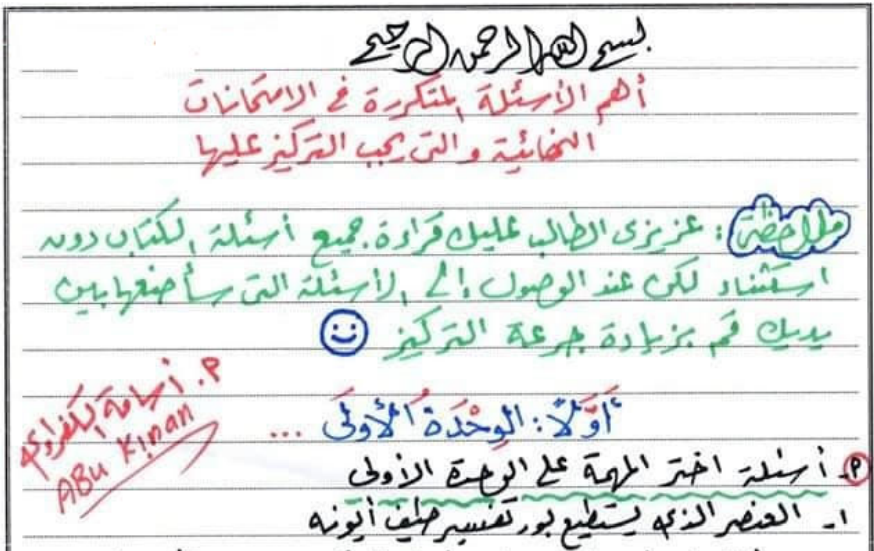 بسم الله الرحمن الرحيم
أهم الأسئلة المتكررة في الامتحانات
النهائية والتي يجب التركيز عليها
ملاحظة: عزيزي الطالب عليك قراءة جميع أسئلة الكتاب دون
استثناء لكن عند الوصول إلى الأسئلة التي سأضعها بين
يديك قم بزيادة جرعة التركيز
م. أسامة
ABU Kinan
أوَّلًا: الوِحْدَةُ الأولَى ...
م. أسئلة اختر المهمة على الوحدة الأولى
١- العنصر الذي يستطيع بور تفسير طيف أيونه